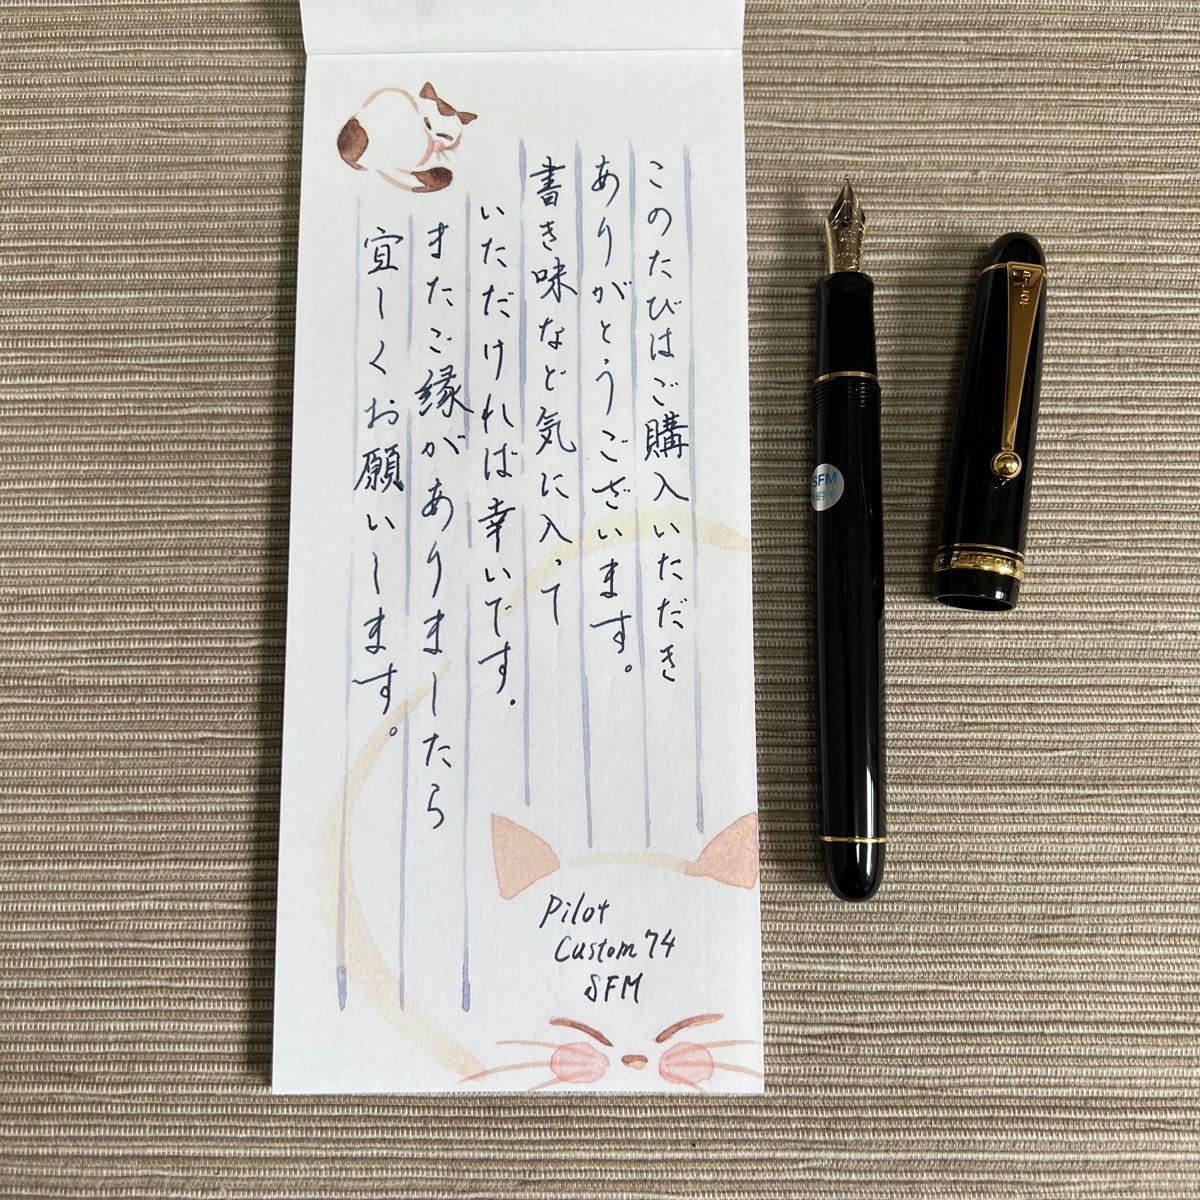 このたびはご購入いただき
ありがとうございます。
書き味など気に入って
いただければ幸いです。
またご縁がありましたら
宜しくお願いします。
Pilot
Custom 74
SFM
SFM